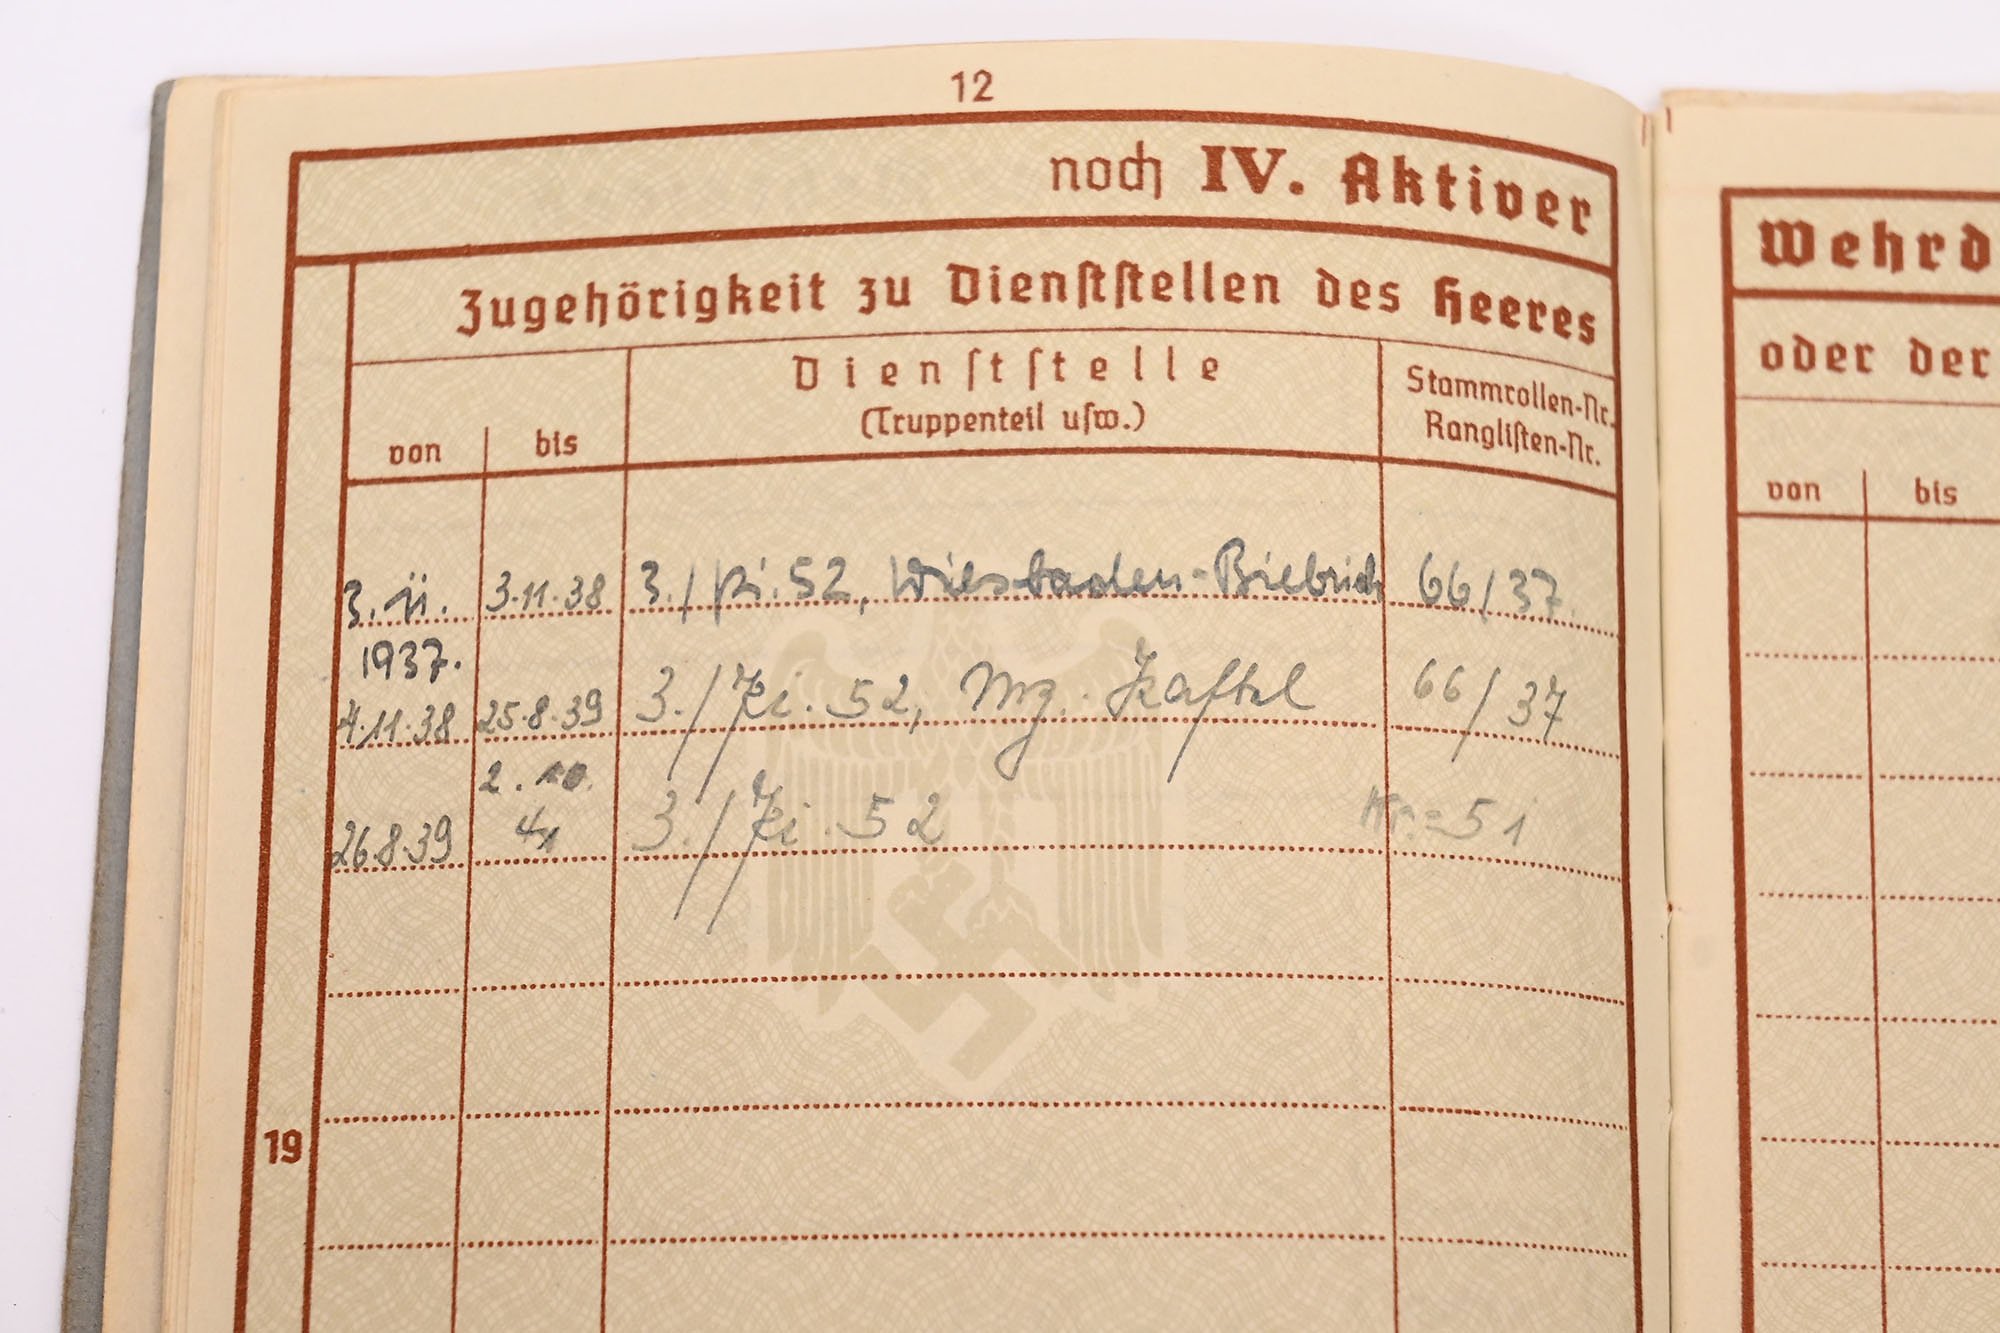 12
noch IV. Aktiver
Wehrd
Zugehörigkeit zu Dienststellen des Heeres
oder der
von
bis
Dienststelle
(Truppenteil usw.)
Stammrollen-Nr.
Ranglisten-Nr.
von
bis
3. 11. 3.11.38 3./Pi. 52, Wiesbaden-Biebrich 66/37.
1937.
4.11.38 25.8.39 3./Pi. 52, 66/37
2.10.
26.8.39 41 3./Pi. 52 Nr.=51
19